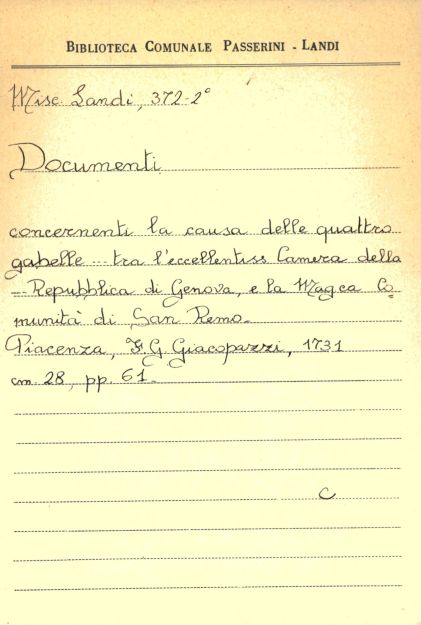 BIBLIOTECA COMUNALE PASSERINI - LANDI
Misc. Landi, 372-2°
Documenti
concernenti la causa delle quattro
gabelle --- tra l'eccellentiss Camera della
-- Repubblica di Genova, e la Magca Co=
munità di San Remo.
Piacenza, F. G. Giacopazzi, 1731
cm. 28, pp. 61.
C